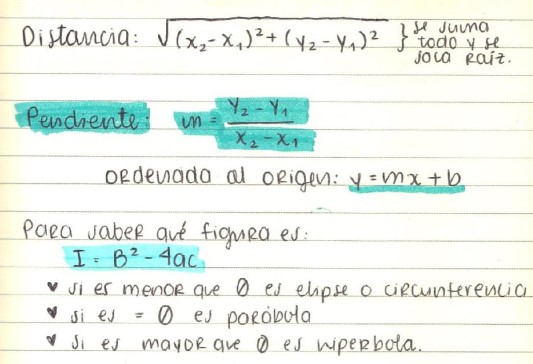 Distancia: √(x₂-x₁)²+(y₂-y₁)² } se suma
todo y se
saca raíz.
Pendiente: m = y₂-y₁ / x₂-x₁
ordenada al origen: y=mx+b
Para saber qué figura es:
I = B²-4ac
♥ si es menor que 0 es elipse o circunferencia
♥ si es = 0 es parábola
♥ si es mayor que 0 es hiperbola.